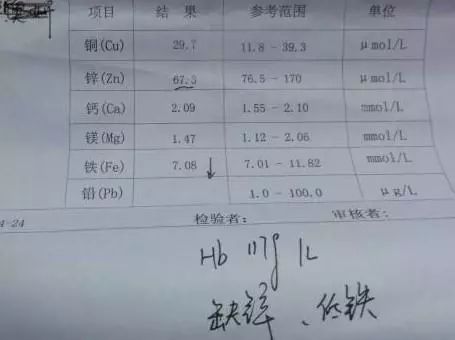 项目 结果 参考范围 单位
铜(Cu) 29.7 11.8 - 39.3 μmol/L
锌(Zn) 67.3 76.5 - 170 μmol/L
钙(Ca) 2.09 1.55 - 2.10 mmol/L
镁(Mg) 1.47 1.12 - 2.06 mmol/L
铁(Fe) 7.08 ↓ 7.01 - 11.82 mmol/L
铅(Pb) 1.0 - 100.0 μg/L
4-24 检验者: 审核者:
Hb 117g/L
缺锌、低铁